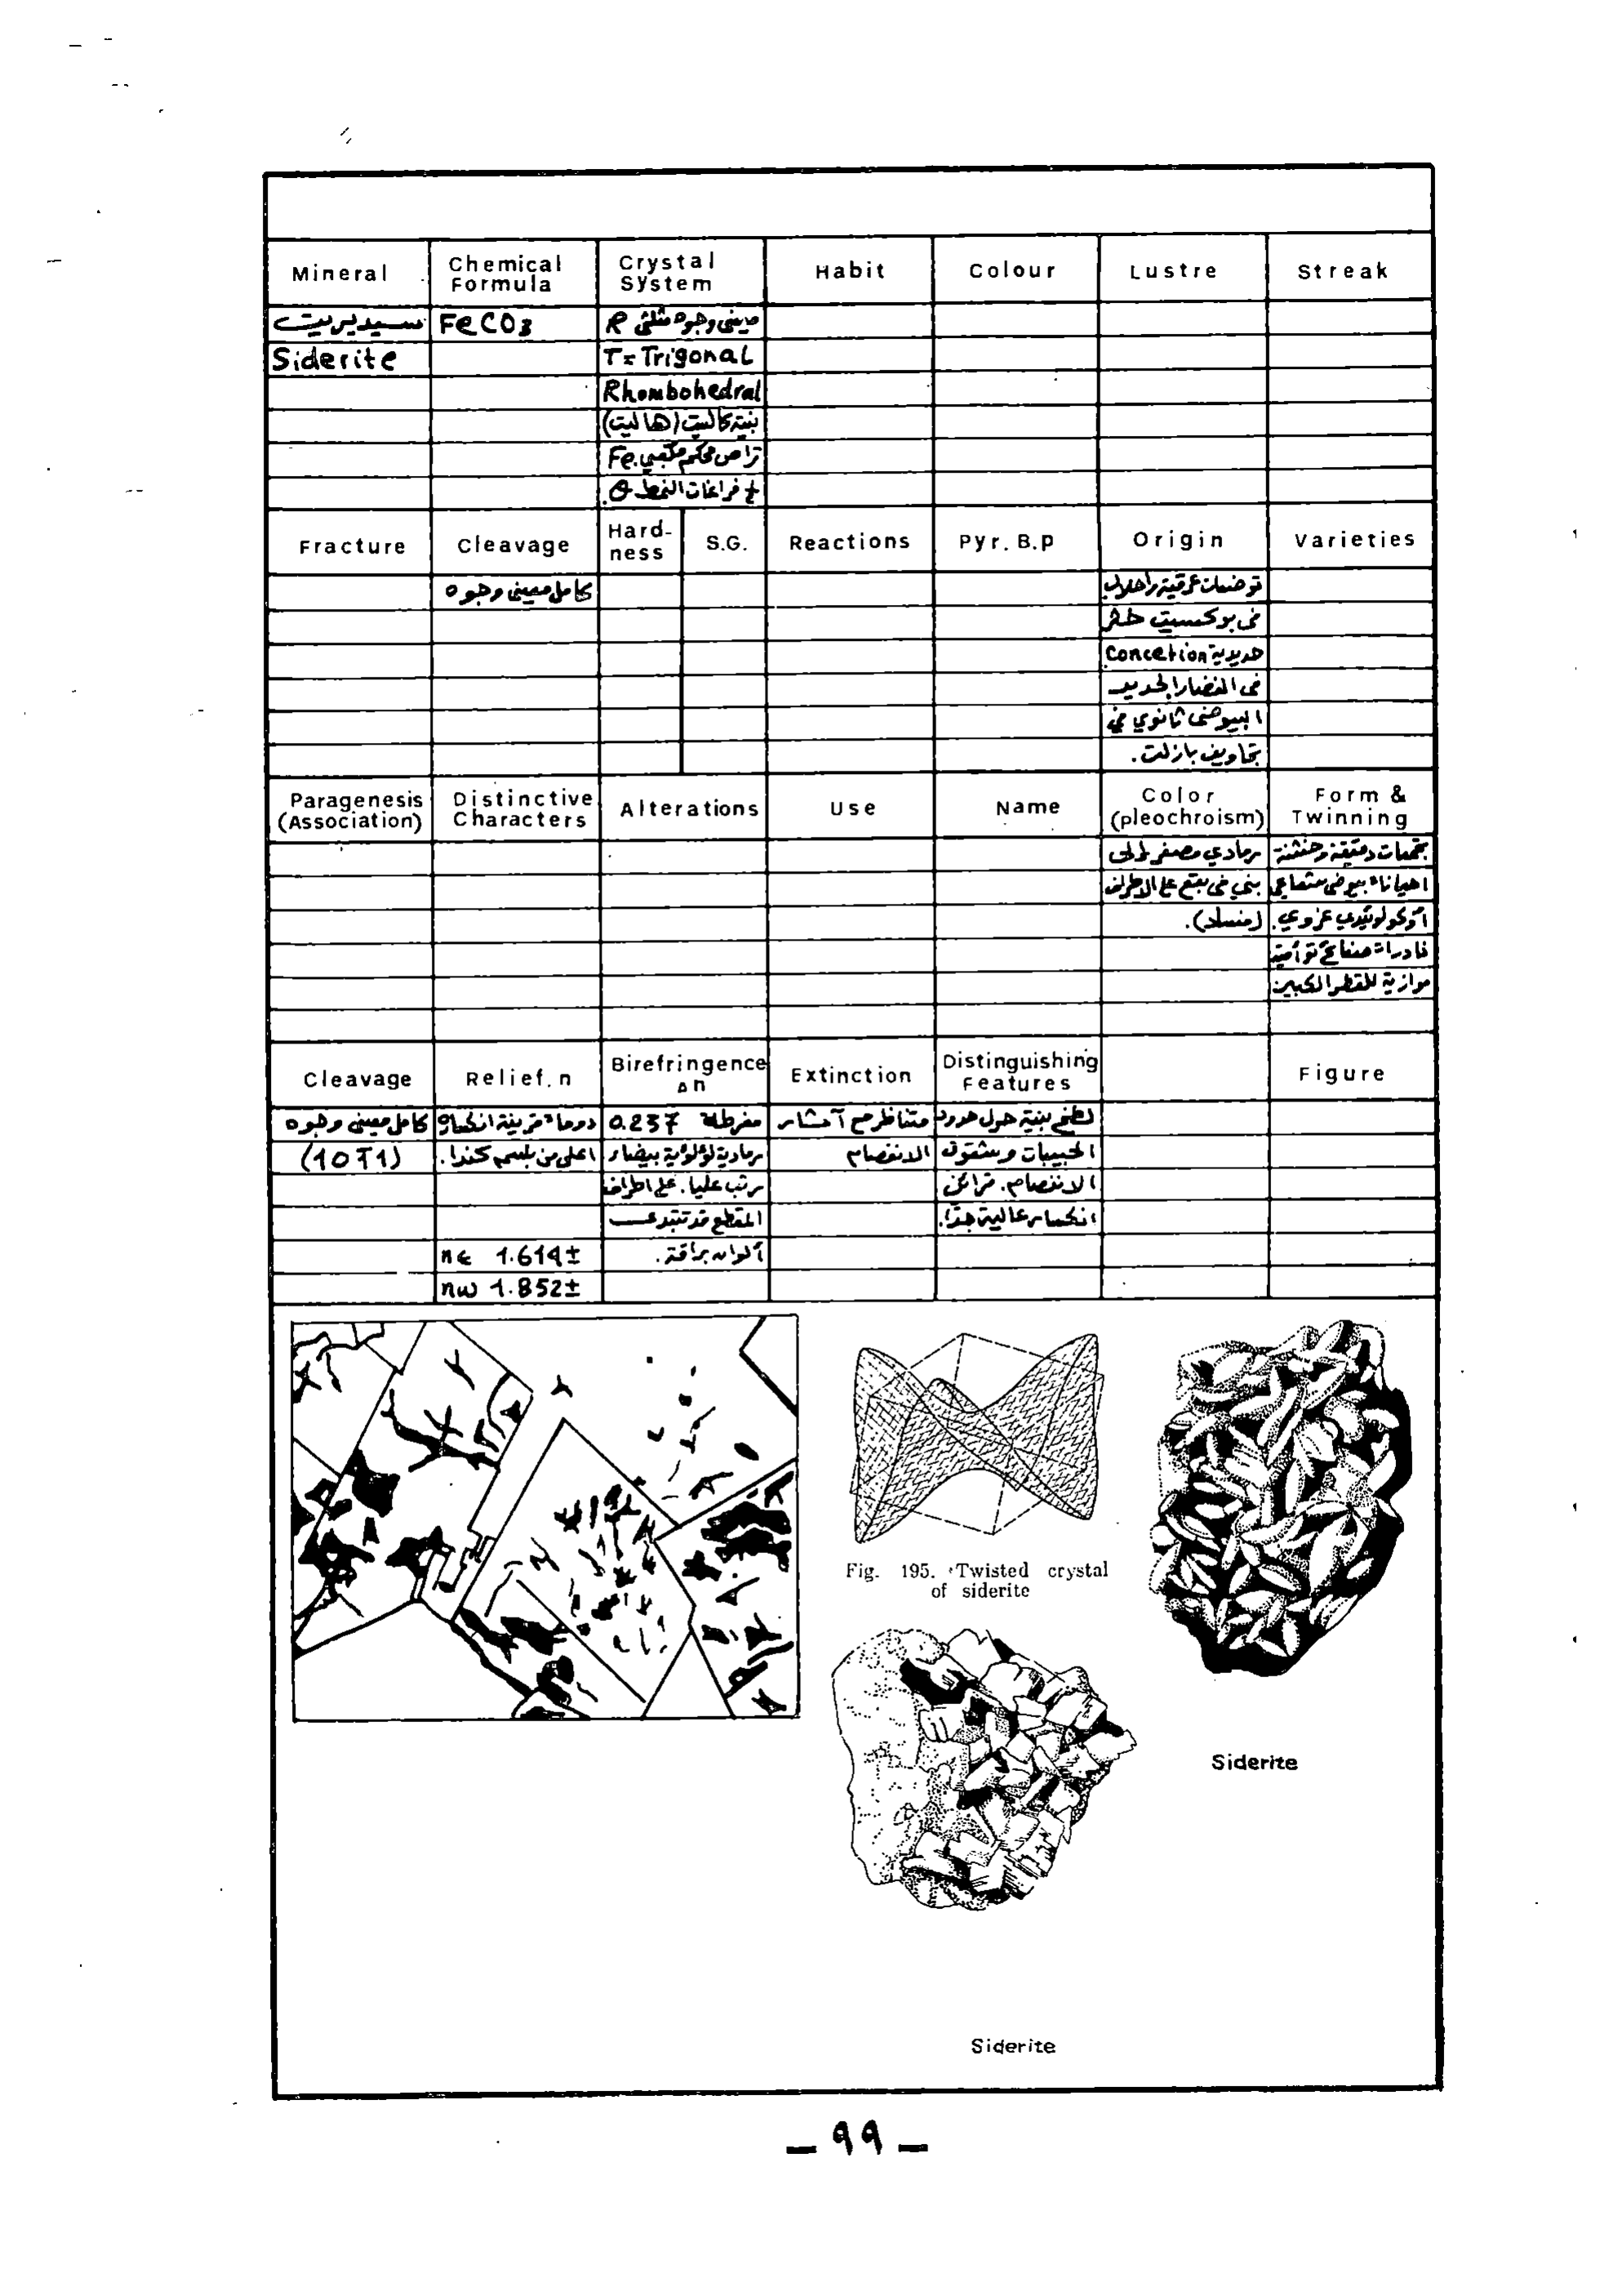 Mineral
Chemical Formula
Crystal System
Habit
Colour
Lustre
Streak
سيديريت
FeCO3
معيني وجوه مثلثي R
Siderite
T=Trigonal
Rhombohedral
بنية كالسيت (هاليت)
تراص محكم مكعبي Fe.
+ فراغات النمط θ.
Fracture
Cleavage
Hard-ness
S.G.
Reactions
Pyr. B.p
Origin
Varieties
كامل معيني وجوه
توضعات عرقية واحلال
في بوكسيت
حديدية Concetion
في الغضار الحديد
البيوضي ثانوي في
تجاويف بازلت.
Paragenesis (Association)
Distinctive Characters
Alterations
Use
Name
Color (pleochroism)
Form & Twinning
رمادي مصفر إلى
تجمعات دقيقة وخشنة
بني في بقع على الاطراف
احيانا بيوضي شعاعي
(منسلد).
أو كولوئيدي غروي.
نادرا صفائح توأمية
موازية للقطر الكبير
Cleavage
Relief. n
Birefringence Δn
Extinction
Distinguishing Features
Figure
كامل معيني وجوه
دوما قرينة انكسار
مفرطة 0.237
متناظر مع آثار
لطخ بنية حول حدود
(10T1)
اعلى من بلسم كندا.
رمادية لؤلؤية بيضاء
الانفصام
الحبيبات وشقوق
رتب عليا. على اطراف
الانفصام. قرائن
المقطع قد تبتدع
انكسار عالية جدا.
nε 1.614±
ألوان براقة.
nω 1.852±
Fig. 195. Twisted crystal
of siderite
Siderite
Siderite
– ٩٩ –